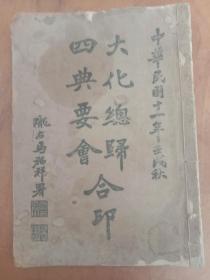 中華民國十一年壬戌秋
大化總歸合印
四典要會
隴右馬福祥署